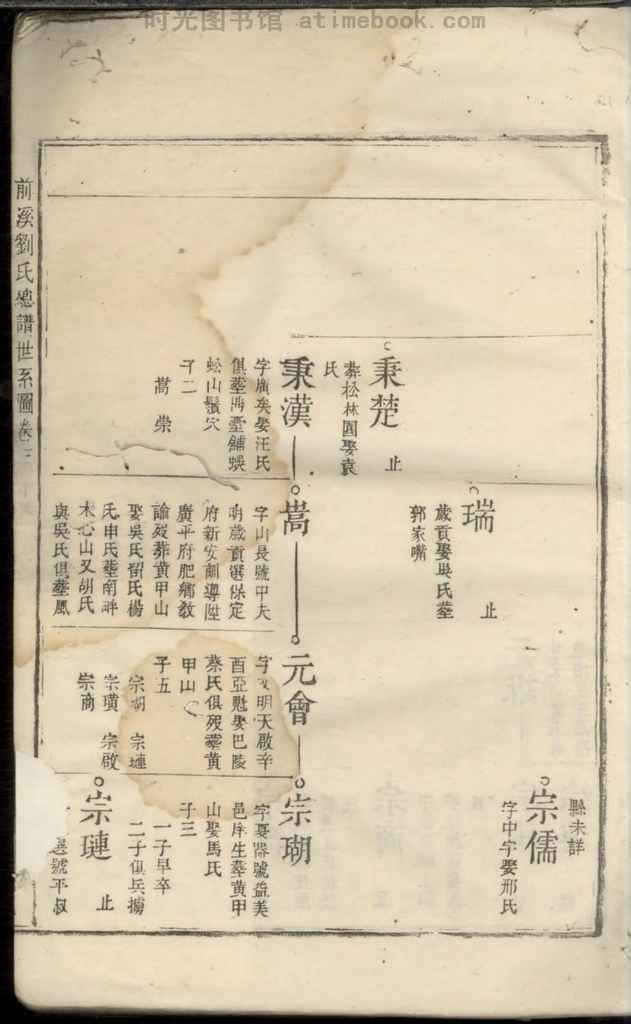 时光图书馆 atimebook.com
秉楚
止
葬松林園娶袁
氏
秉漢
字廣矣娶汪氏
蚣山鬚穴
子二
嵩 崇
瑞
止
歲貢娶吳氏葬
郭家嘴
嵩
字山長號中夫
明歲貢選保定
府新安訓導陞
廣平府肥鄉教
諭歿葬黃甲山
娶吳氏留氏楊
木心山又胡氏
與吳氏俱葬鳳
元會
明天啟辛
酉亞魁娶巴陵
蔡氏俱歿葬黃
甲山
子五
宗瑚 宗璉
宗璜 宗啟
宗商
縣未詳
宗儒
字中字娶邢氏
宗瑚
字夏器號益美
邑庠生葬黃甲
山娶馬氏
子三
一子早卒
二子俱兵擄
宗璉
止
號平叔
前溪劉氏總譜世系圖卷